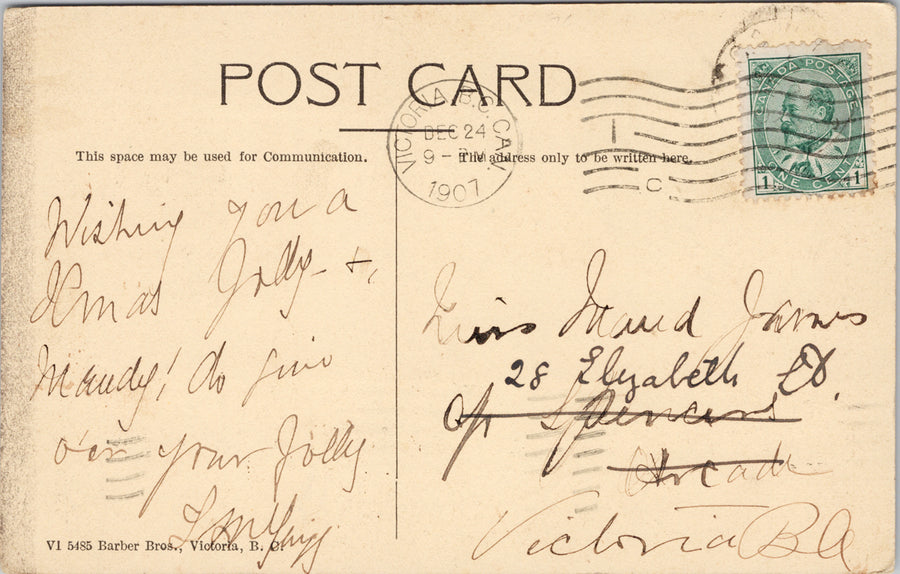 POST CARD
This space may be used for Communication.
The address only to be written here.
VICTORIA, B.C. CAN.
DEC 24
9 - PM
1907
I
C
CANADA POSTAGE
1 ONE CENT 1
Wishing you a
Xmas Jolly - &
Maudy! do give
o'er your Jolly
VI 5485 Barber Bros., Victoria, B. C.
Miss Maud James
28 Elizabeth St
c/o Spencers
Arcade
Victoria BC